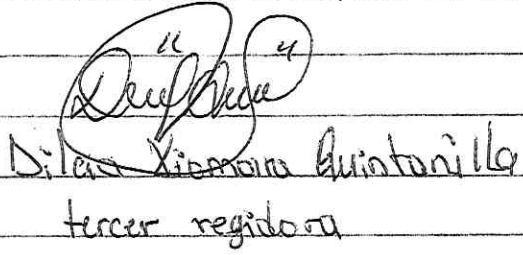 Xiomara Quintanilla
tercer regidora